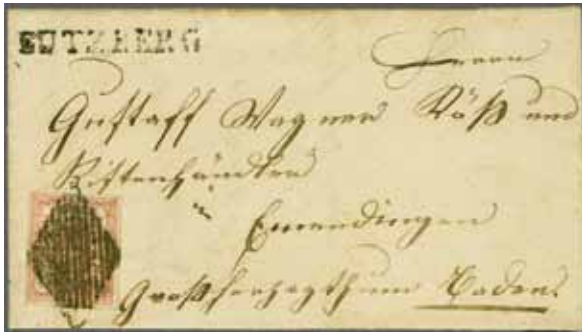 BUTZBERG
Herrn
Gustaff Wagner Röß und
Ristenhändler
in
Emendingen
Großherzogthum Baden.